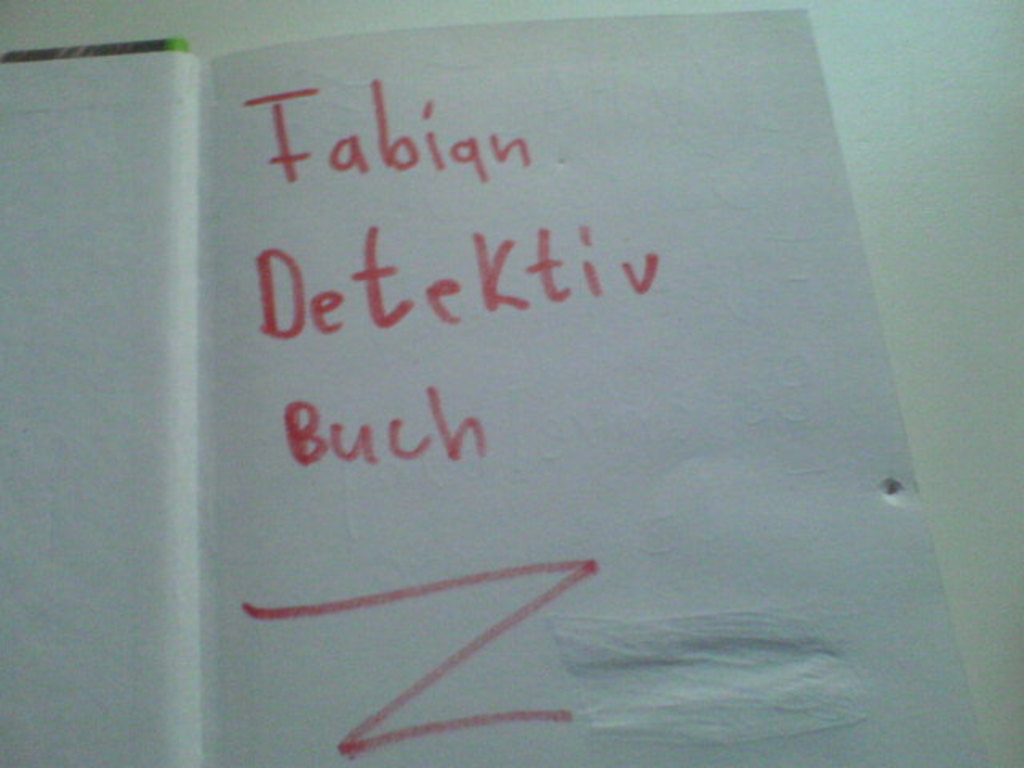 Fabian
Detektiv
Buch
Z